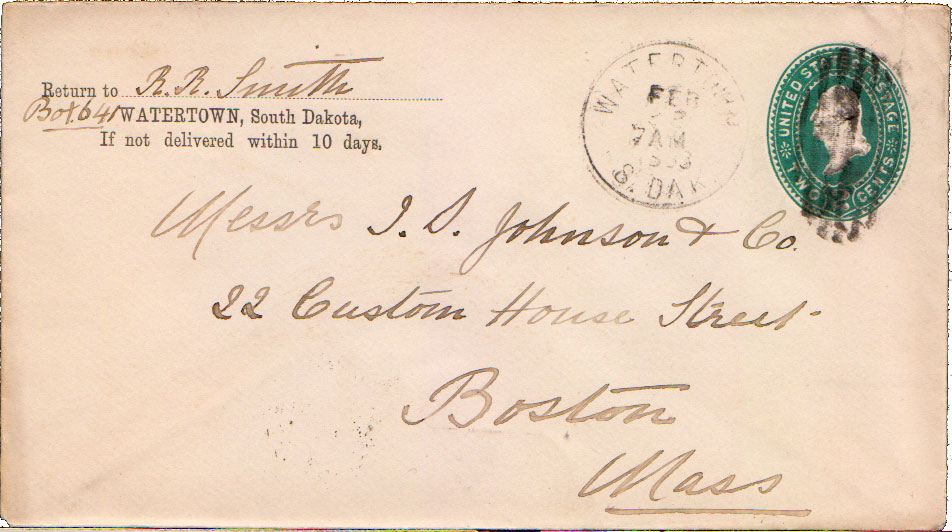 Return to R. R. Smith
Box 641 WATERTOWN, South Dakota,
If not delivered within 10 days,
WATERTOWN
FEB
7 AM
S. DAK.
UNITED STATES POSTAGE
TWO CENTS
Messrs I. S. Johnson & Co.
22 Custom House Street
Boston
Mass